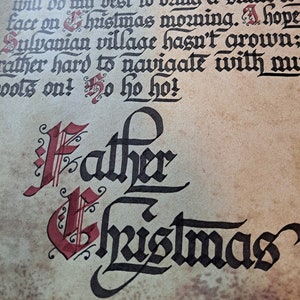 will do my best to bring a
face on Christmas morning. I hope
Sylvanian village hasn't grown:
rather hard to navigate with my
boots on! Ho ho ho!
Father
Christmas